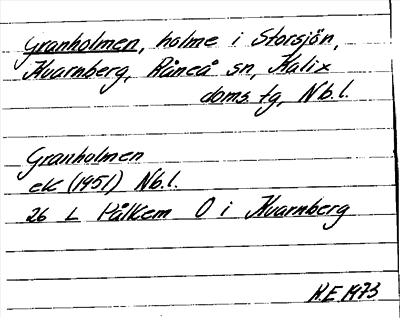 Granholmen, holme i Storsjön,
Kvarnberg, Råneå sn, Kalix
doms. tg, Nb.l.
Granholmen
ek (1951) Nb.l.
26 L Pålkem O i Kvarnberg
K.E 1973